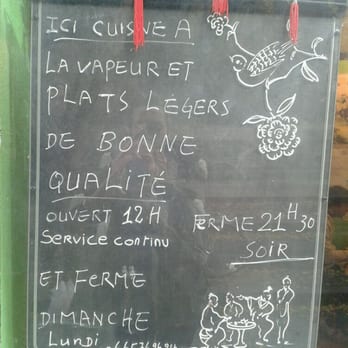 ICI CUISINE A
LA VAPEUR ET
PLATS LÉGERS
DE BONNE
QUALITÉ
OUVERT 12H FERME 21H30
Service continu SOIR
ET FERME
DIMANCHE
Lundi